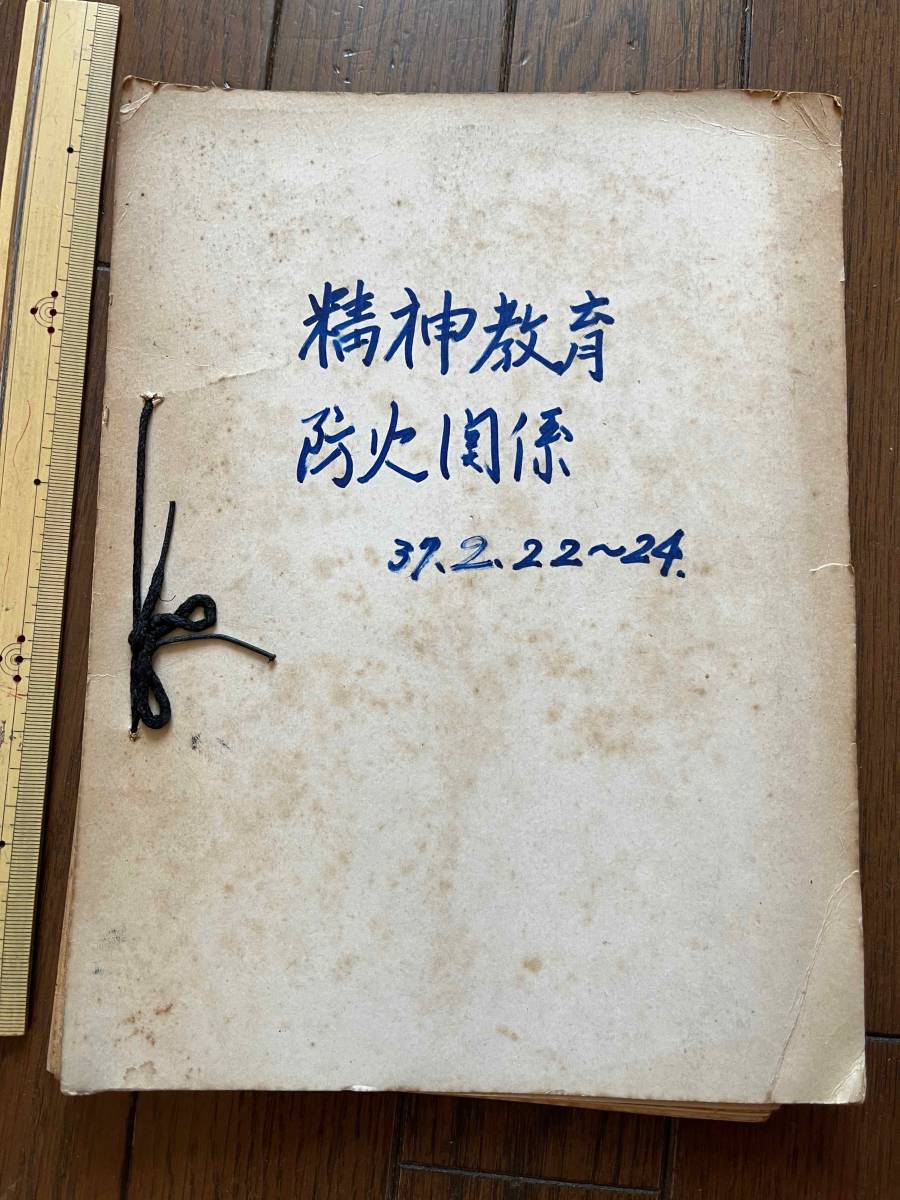 精神教育
防火関係
37.2.22~24.